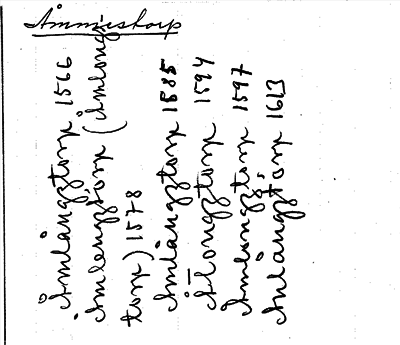 Ämmestorp
Åmlångztorp 1566
Åmlengztorp (Åmlong
torp) 1578
Amlångztorp 1585
Alongztorp 1594
Amlongztorp 1597
Amlångztorp 1613